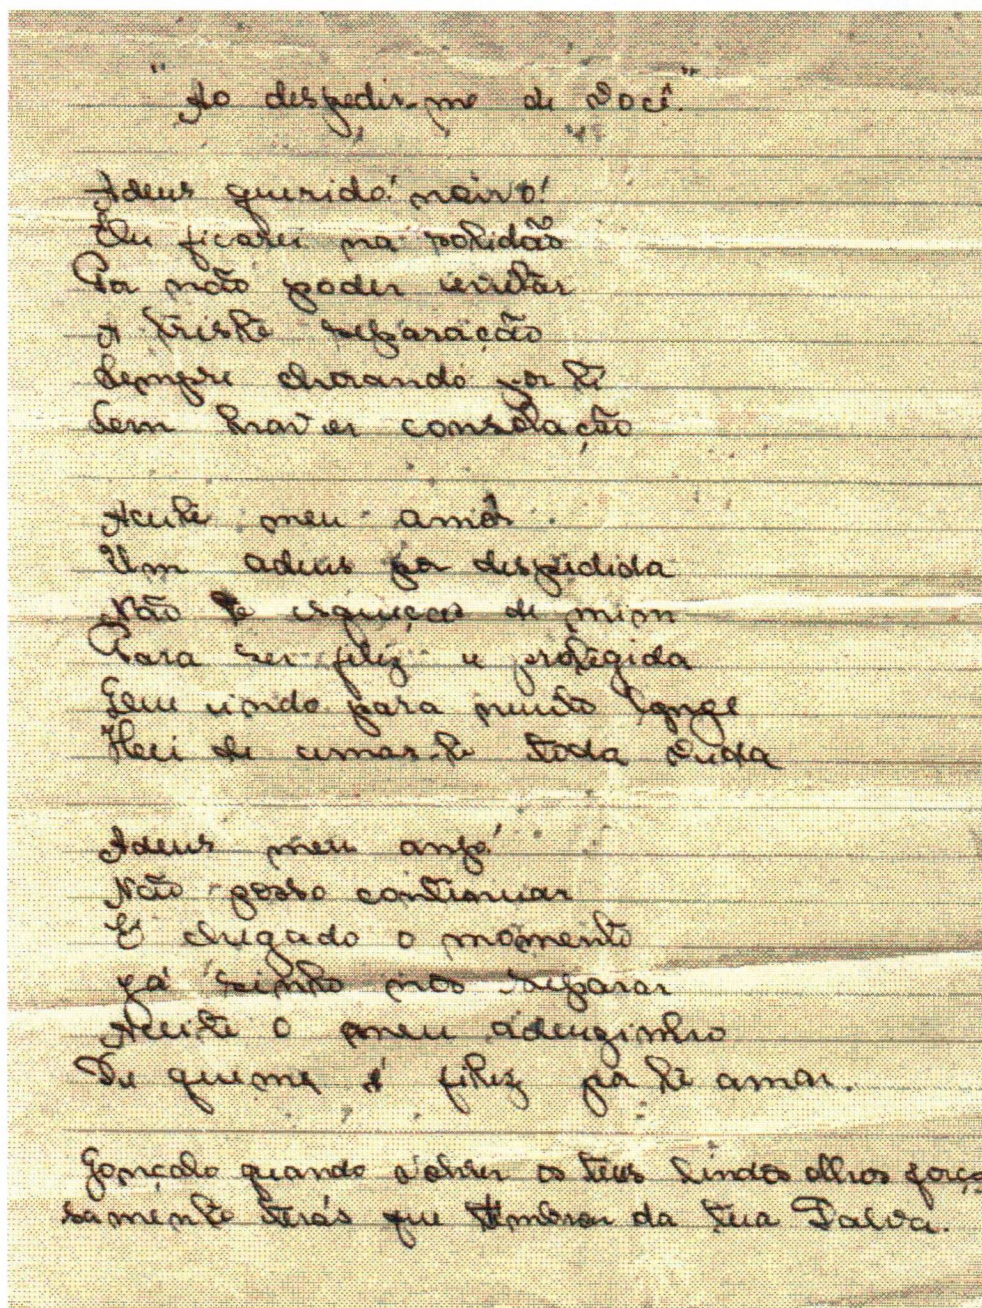 "Ao despedir-me de Você."
Adeus querido! noivo!
Eu ficarei na solidão
Por não poder evitar
A triste separação
Sempre chorando por ti
Sem haver consolação
Aceite meu amôr
Um adeus por despedida
Não te esqueças de mim
Para ser feliz e protegida
indo para muito longe
Hei de amar-te toda vida
Adeus meu anjo!
Não posso continuar
É chegado o momento
Já tenho nos separar
Aceite o meu adeuzinho
De quem é feliz por te amar.
Gonçalo quando abrir os teus lindos olhos força
samente terás que lembrar da tua Dalva.